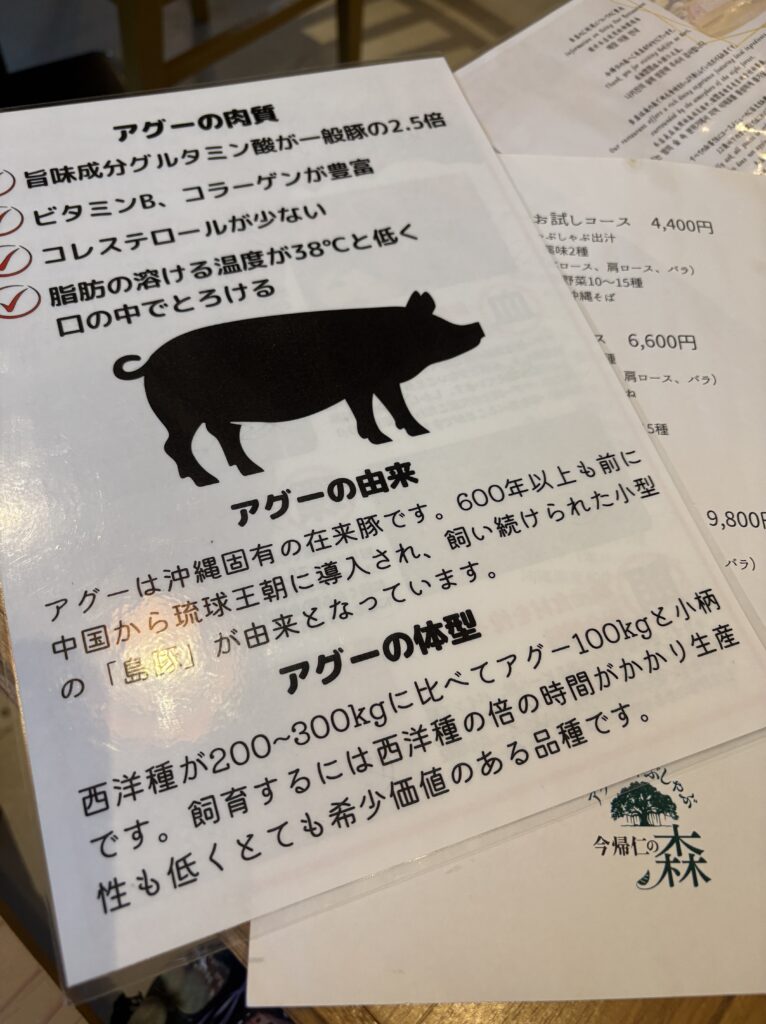 アグーの肉質
旨味成分グルタミン酸が一般豚の2.5倍
ビタミンB、コラーゲンが豊富
コレステロールが少ない
脂肪の溶ける温度が38℃と低く
口の中でとろける
アグーの由来
アグーは沖縄固有の在来豚です。600年以上も前に
中国から琉球王朝に導入され、飼い続けられた小型
の「島豚」が由来となっています。
アグーの体型
西洋種が200~300kgに比べてアグー100kgと小柄
です。飼育するには西洋種の倍の時間がかかり生産
性も低くとても希少価値のある品種です。
お試しコース 4,400円
しゃぶ出汁
味2種
ロース、肩ロース、バラ)
野菜10〜15種
沖縄そば
ス 6,600円
種
肩ロース、バラ)
ね
5種
9,800円
バラ)
ぶしゃぶ
今帰仁の森